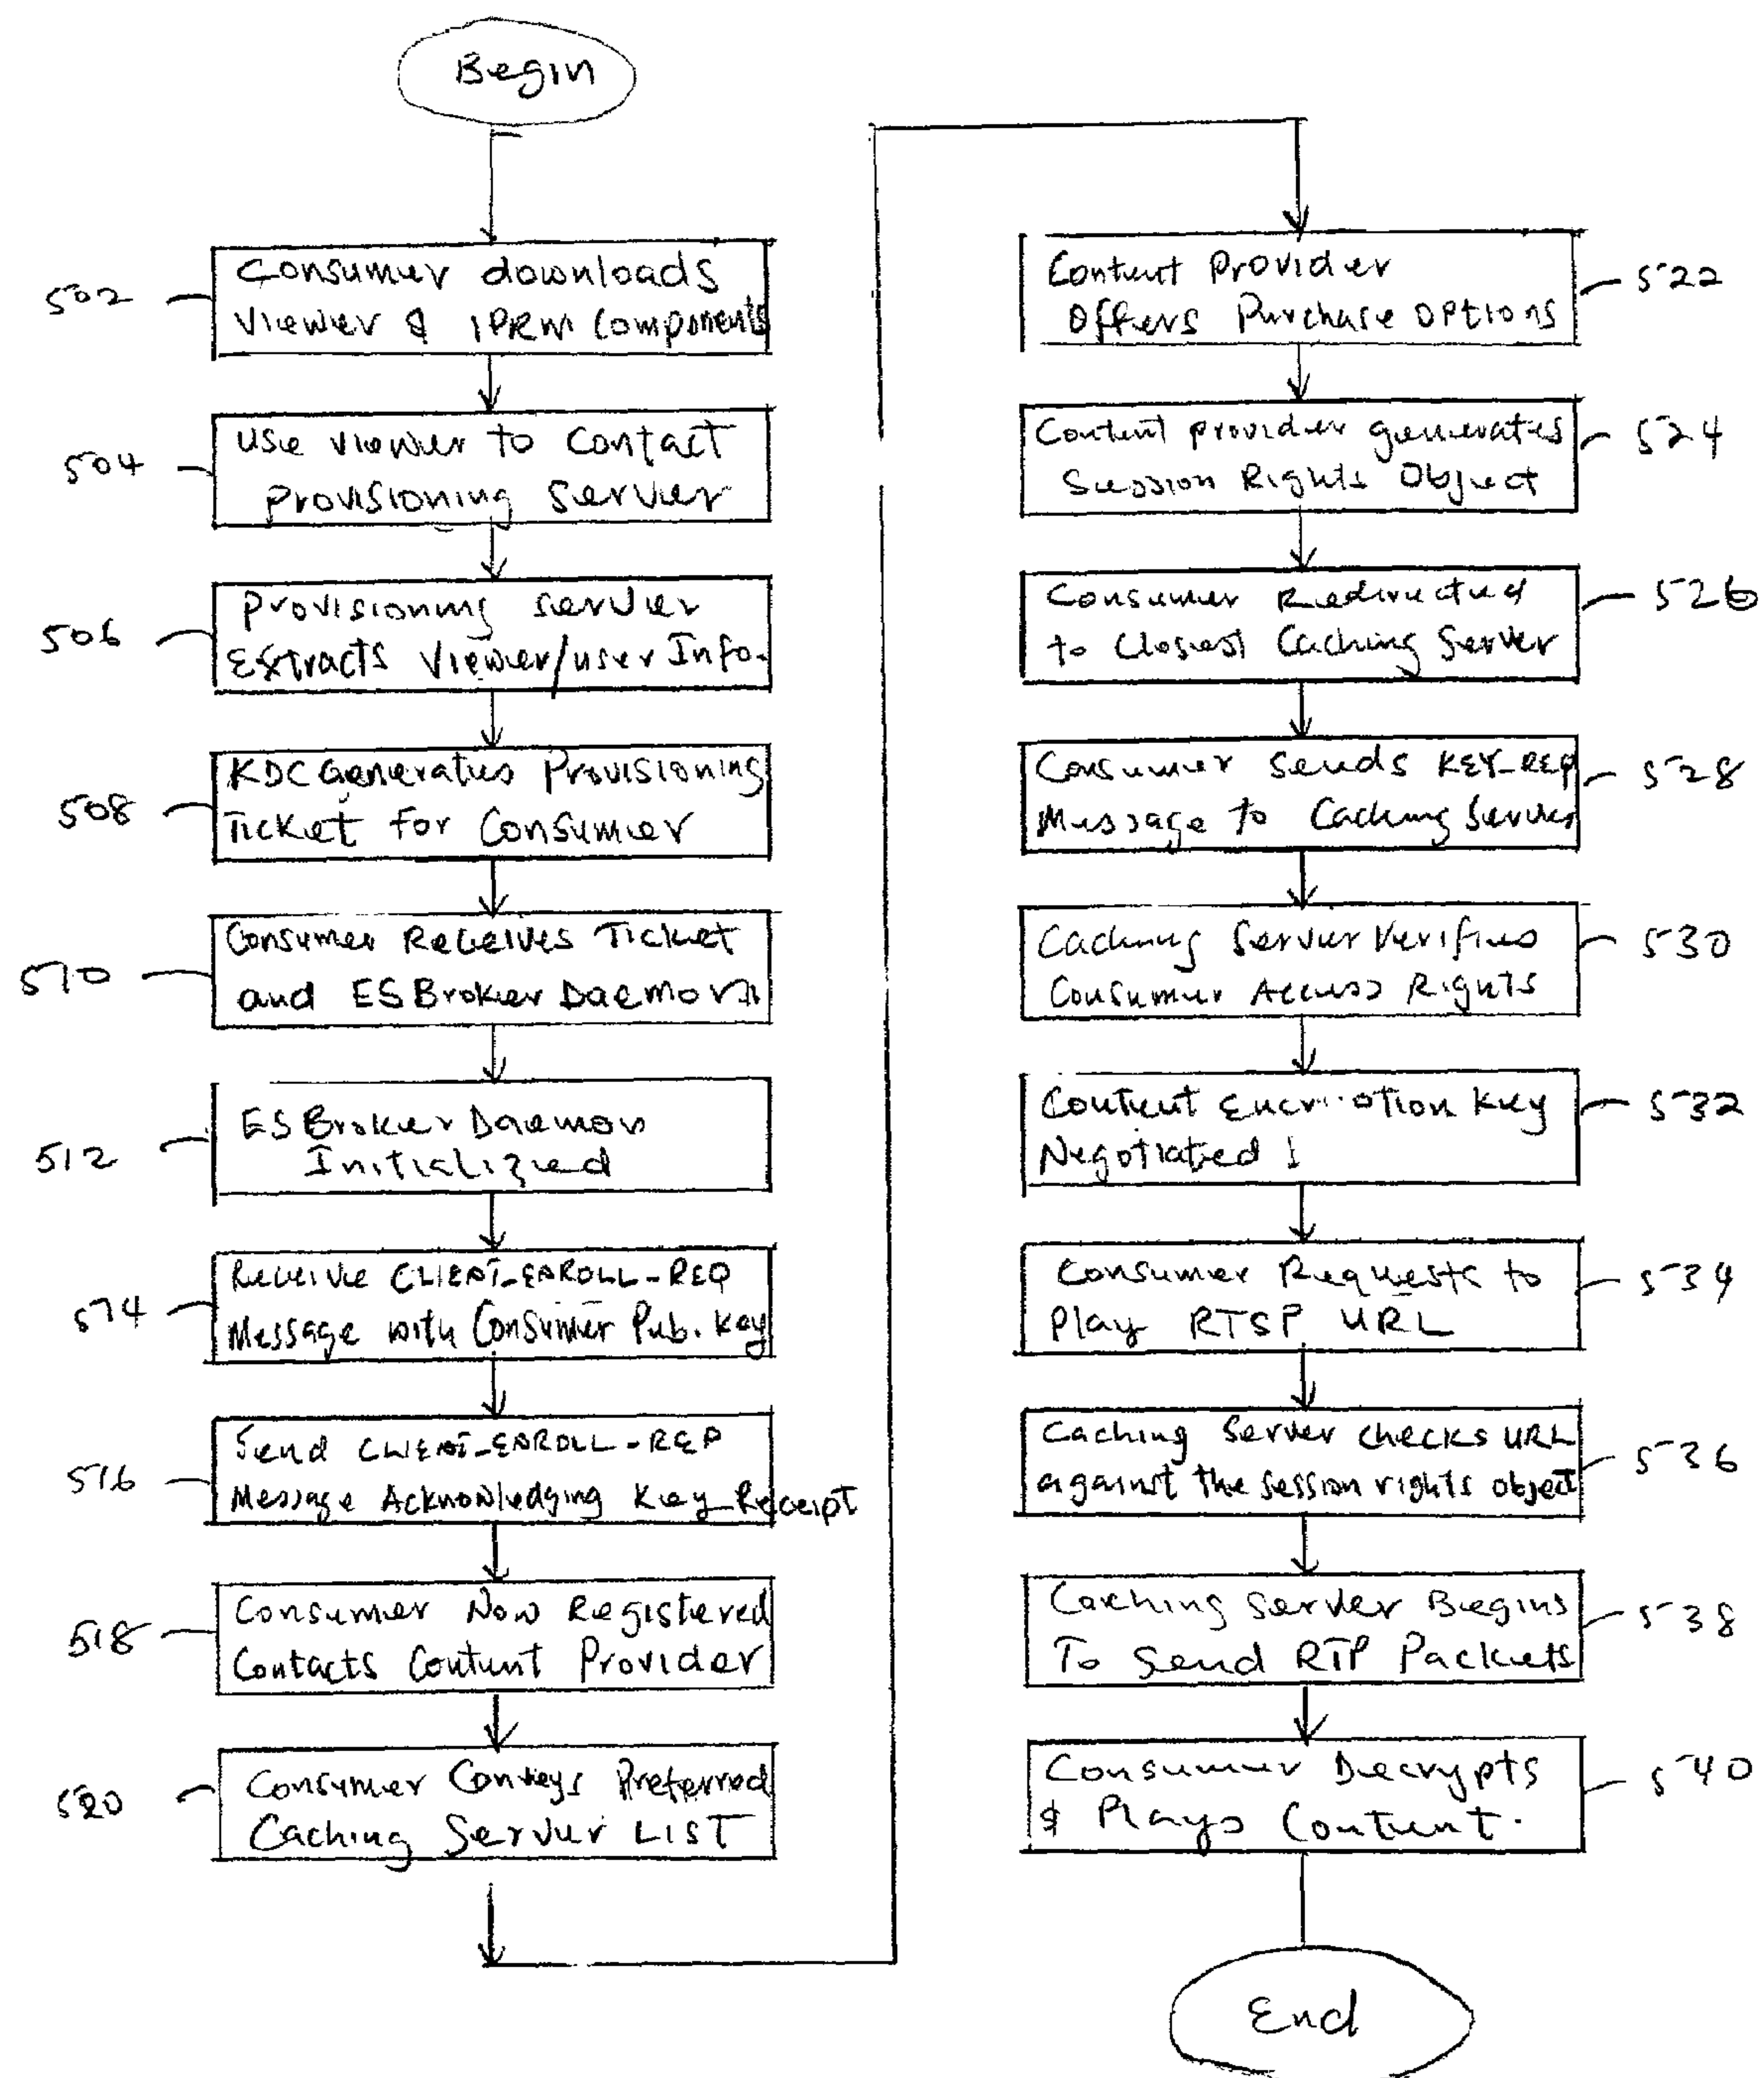 Begin
502
Consumer downloads
Viewer & IPRM Components
504
Use viewer to Contact
Provisioning Server
506
Provisioning server
Extracts Viewer/user Info.
508
KDC Generates Provisioning
Ticket For Consumer
510
Consumer Receives Ticket
and ES Broker Daemon
512
ES Broker Daemon
Initialized
514
Receive CLIENT_ENROLL_REQ
Message with Consumer Pub. Key
516
Send CLIENT_ENROLL_REP
Message Acknowledging Key Receipt
518
Consumer Now Registered
Contacts Content Provider
520
Consumer Conveys Preferred
Caching Server LIST
Content Provider
Offers Purchase Options
522
Content provider generates
Session Rights Object
524
Consumer Redirected
to Closest Caching Server
526
Consumer Sends KEY_REQ
Message to Caching Server
528
Caching Server Verifies
Consumer Access Rights
530
Content Encryption Key
Negotiated
532
Consumer Requests to
Play RTSP URL
534
Caching Server checks URL
against the session rights object
536
Caching Server Begins
To Send RTP Packets
538
Consumer Decrypts
& Plays Content.
540
End